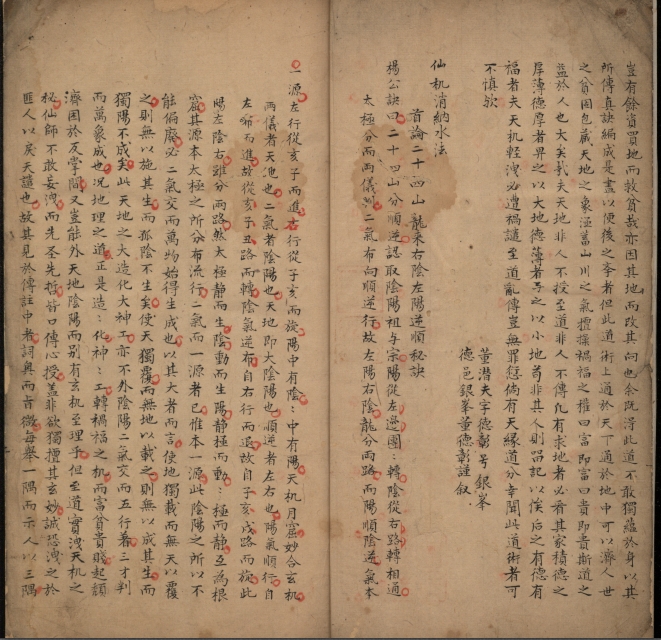 豈有餘資買地而救貧哉亦因其地而改其向也余既得此道不敢獨蘊於身以其
所傳真訣編成是書以便後之李者但此道術上通於天下通於地中可以濟人世
之貧困包藏天地之象溼蓄山川之氣擅操禍福之權曰富即富曰貴即貴斯道之
益於人也大矣哉夫天地非人不授至道非人不傳凡有求地者必看其家積德之
厚薄德厚者畀之以大地德薄者与之以小地苟非其人則當記以俟后之有德有
福者夫天机輕洩必遭禍譴至道亂傳豈無罪愆倘有天縁道分幸聞此道術者可
不慎歟
董潜天字德彰号銀峯
德邑銀峯董德彰謹叙
仙机消納水法
首論二十四山龍來右陰左陽逆順秘訣
楊公訣曰二十四山分順逆認取陰陽祖与宗陽從左邊團：轉陰從右路轉相通
太極分而兩儀判二氣布向順逆行故左陽右陰龍分兩路而陽順陰逆氣本
一源左行從亥子而進右行從子亥而旋陽中有陰：中有陽天机月窟妙合玄机
兩儀者天地也二氣者陰陽也天地即大陰陽也順逆者左右也陽氣順行自
左邜而進故從亥子丑路而轉陰氣逆布自右行而退故自子亥戍路而旋此
陽左陰右雖分兩路然太極静而生陰動而生陽静極而動：極而静互為根
窟其源本太極之所分布流行二氣而一源者已惟本一源此陰陽之所以不
能偏廢必二氣交而萬物始得生成也以其大者而言使地獨載而無天以覆
之則無以施其生而孤陰不生矣使天獨覆而無地以載之則無以成其生而
獨陽不成矣此天地之大造化大神工亦不外陰陽二氣交而五行著三才判
而萬象成也况地理之道正是造：化神：工轉禍福之机而富貧貴賤起顛
濟困於反掌間又豈能外天地陰陽而別有玄机至理乎但至道實洩天机之
秘仙師不敢妄洩而先圣先哲皆口傳心授盖非欲獨擅其玄妙誠恐洩之於
匪人以戾天譴也故其見於傳註中者詞奥而旨微每舉一隅而示人以三隅